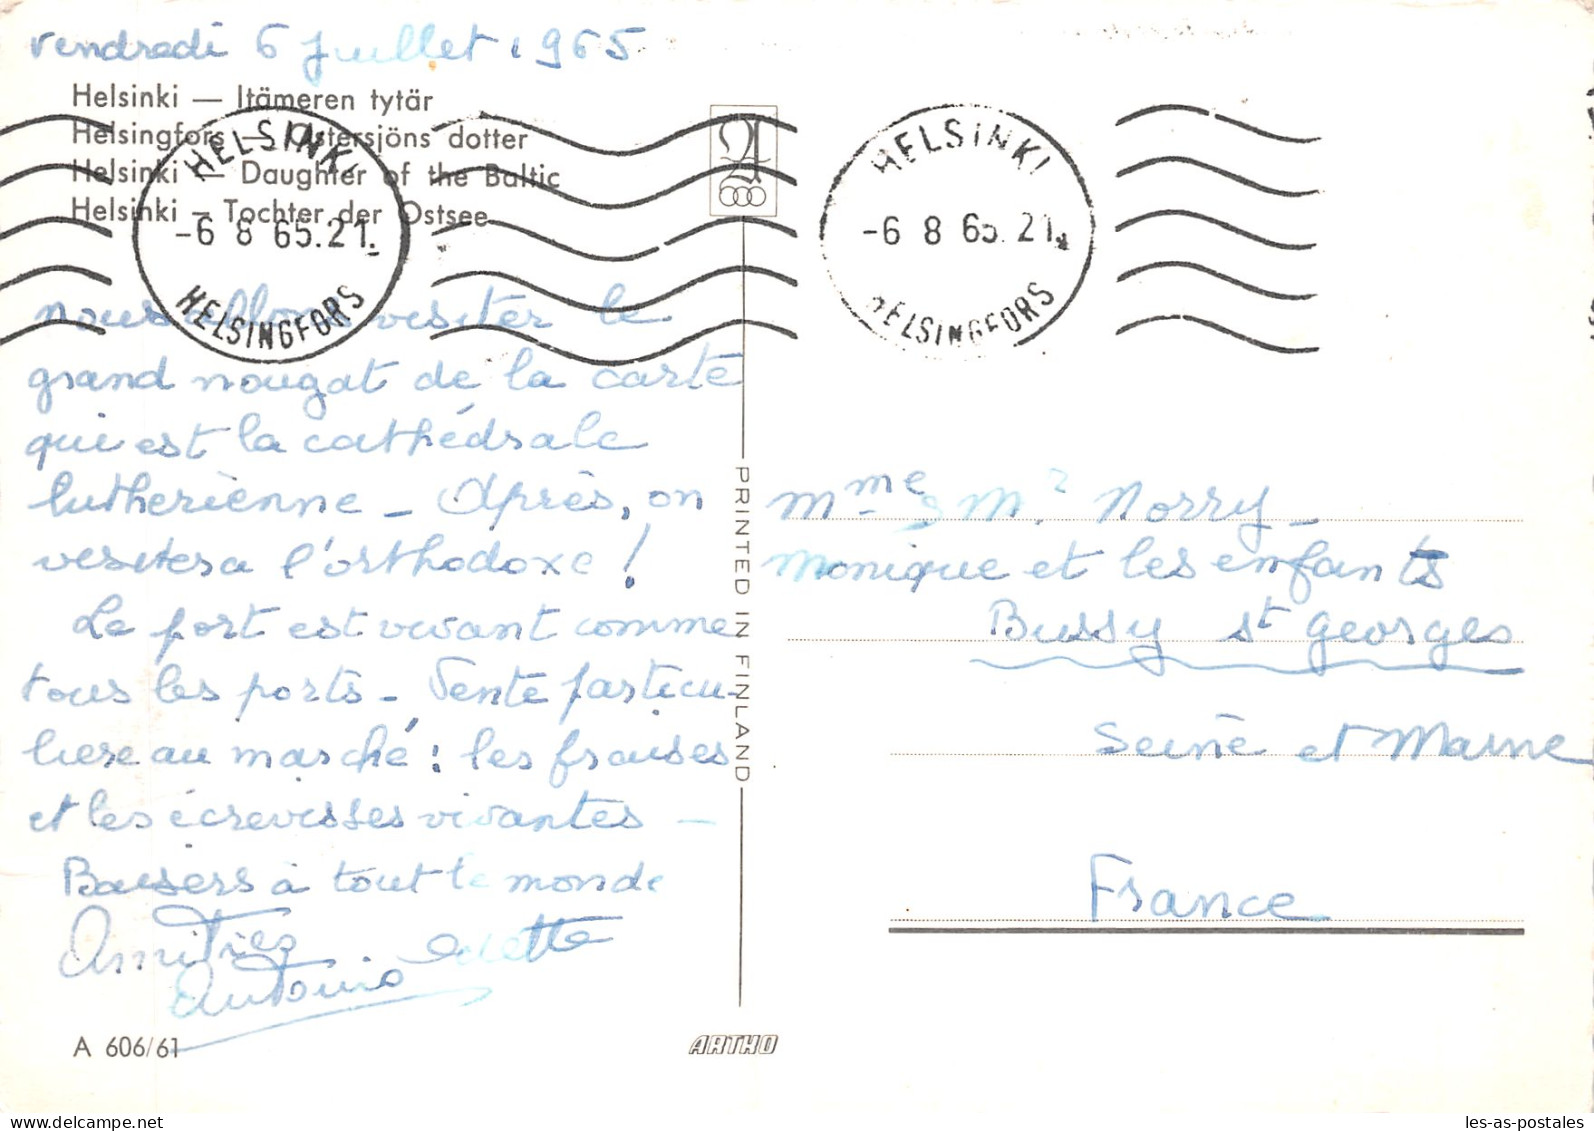 vendredi 6 Juillet 1965
Helsinki — Itämeren tytär
Helsingfors — Östersjöns dotter
Helsinki — Daughter of the Baltic
Helsinki — Tochter der Ostsee
HELSINKI
-6 8 65.21.
HELSINGFORS
HELSINKI
-6 8 65.21.
HELSINGFORS
nous allons visiter le
grand nougat de la carte
qui est la cathédrale
lutherienne — Après, on
visitera l'orthodoxe !
Le port est vivant comme
tous les ports — Vente particu-
liere au marché : les fraises
et les écrevisses vivantes —
Baisers à tout le monde
Amitiés Odette
Antonio
A 606/61
PRINTED IN FINLAND
ARTKO
Mme & Mr Norry —
Monique et les enfants
Bussy St Georges
Seine et Marne
France
les-as-postales